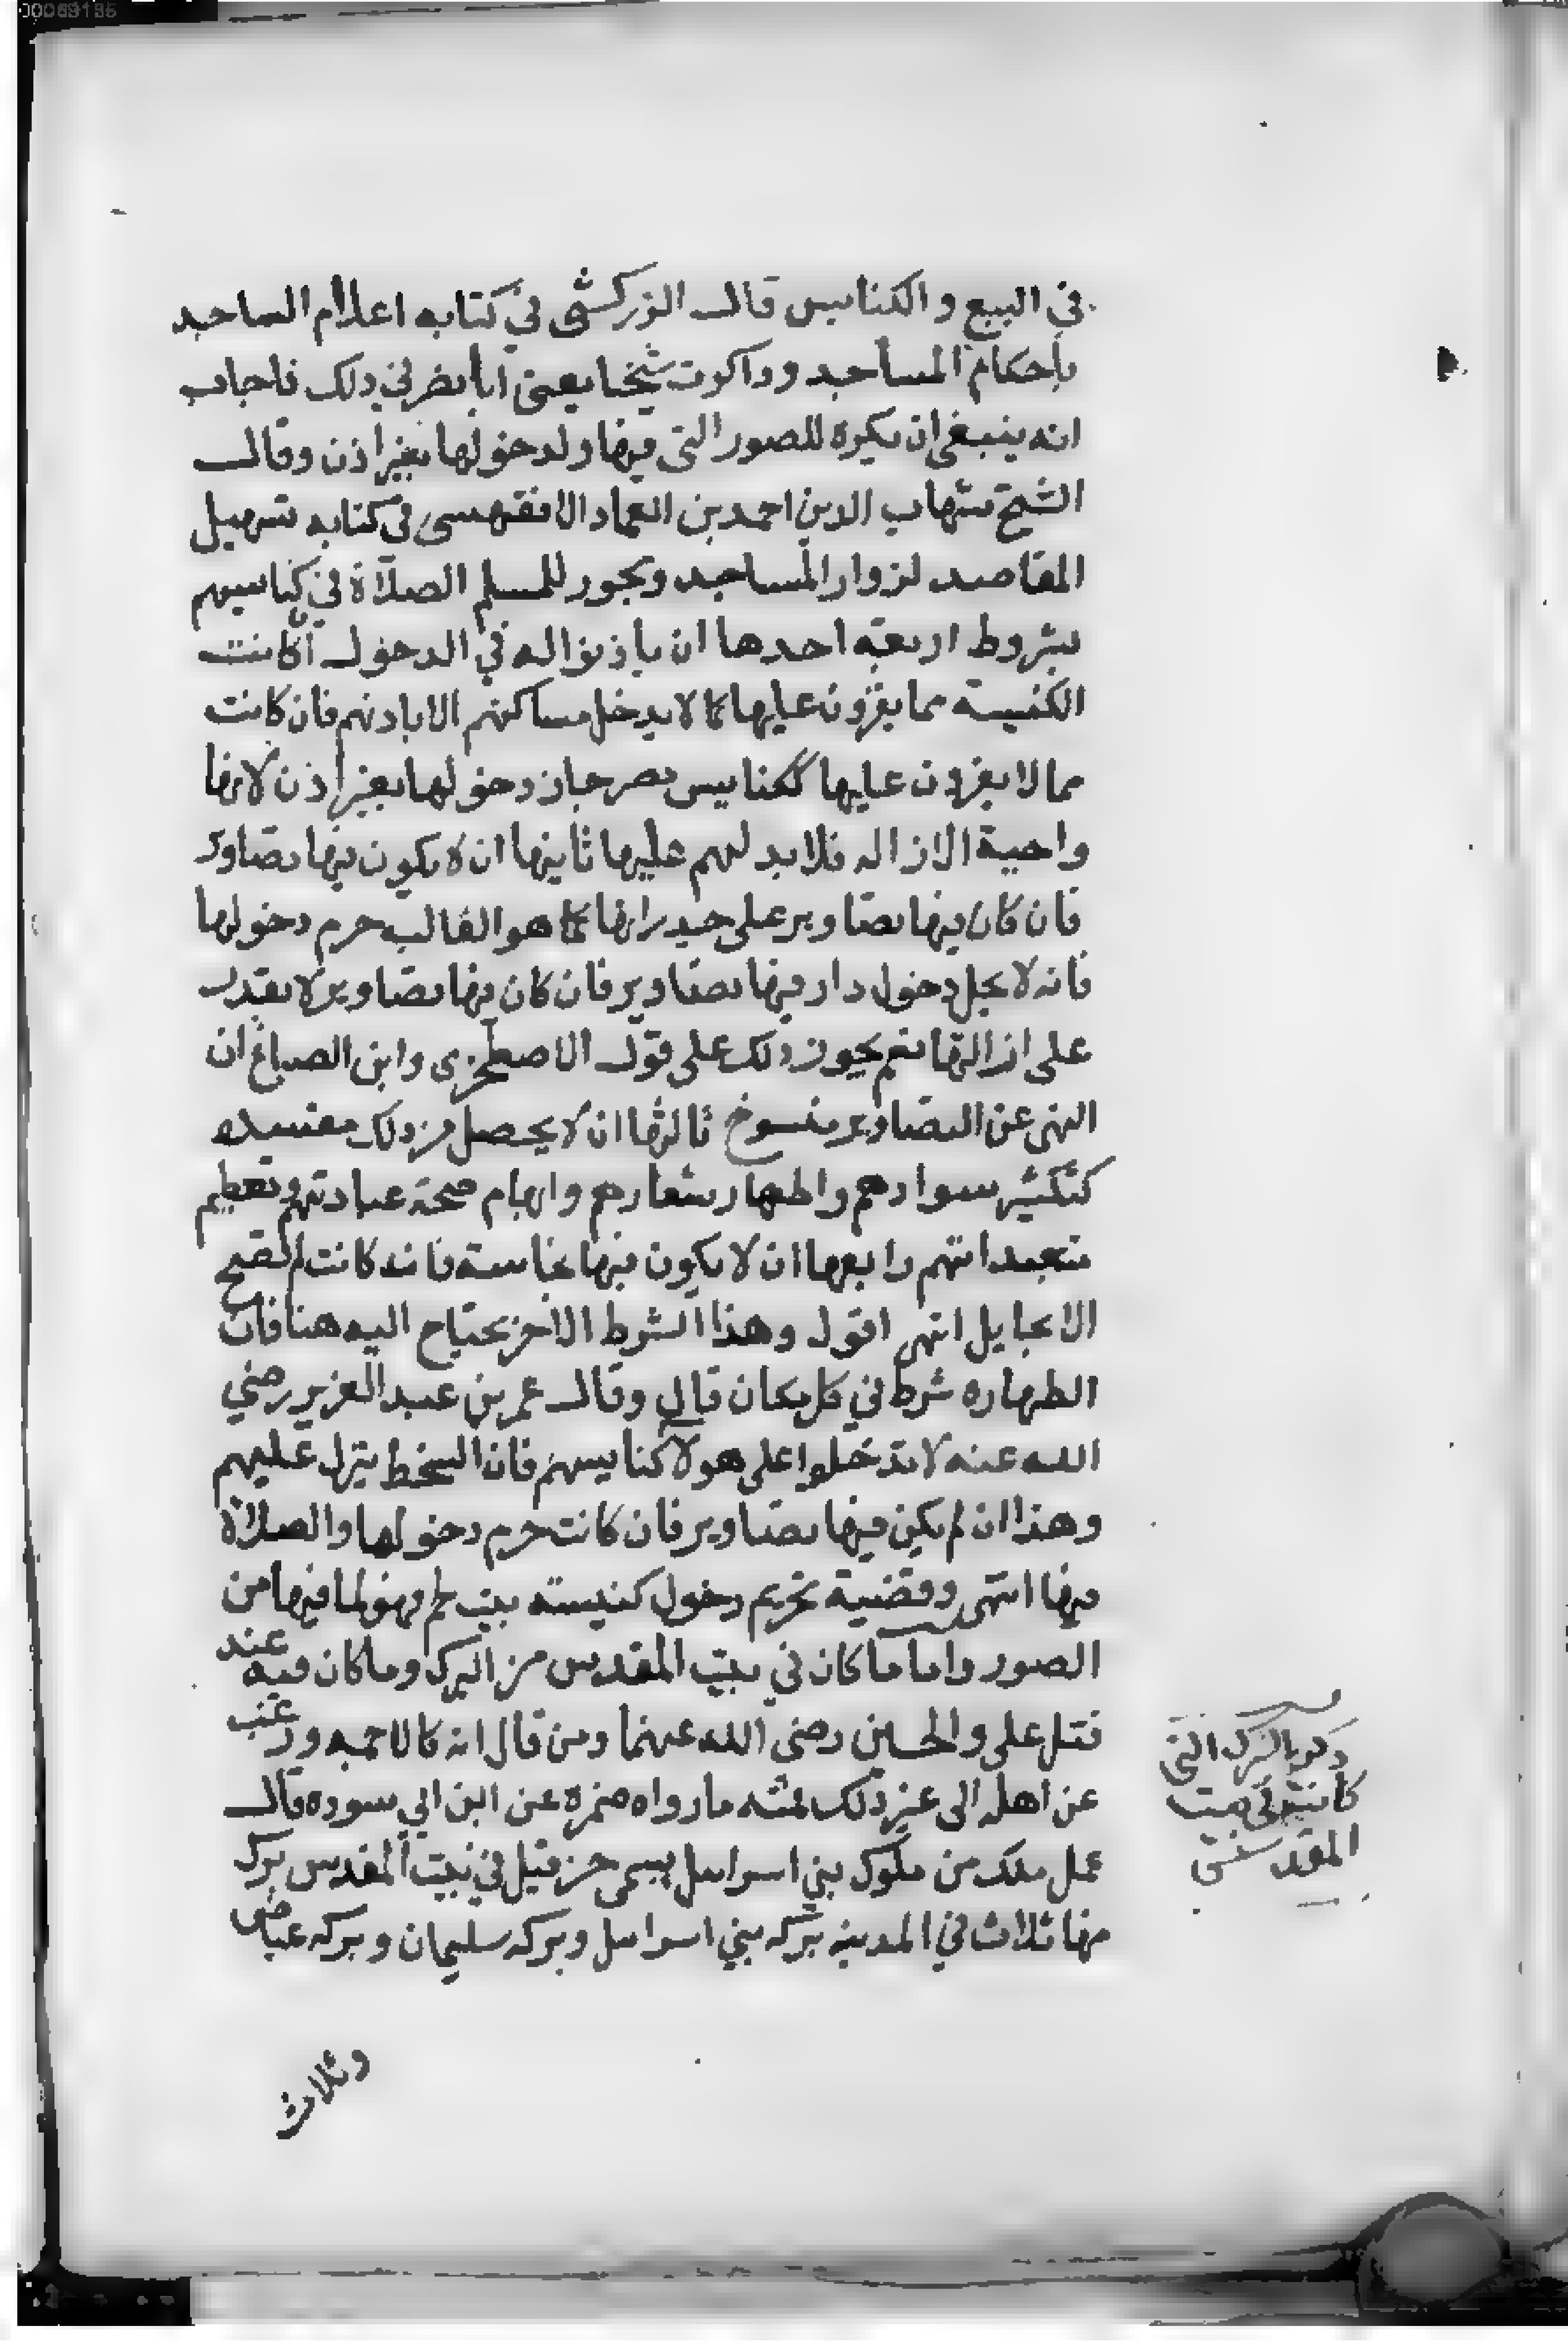 في البيع والكنايس قال الزركشي في كتابه اعلام الساجد
باحكام المساجد وداكرت شيخنا يعني ابا نصر في دلك فاجاب
انه ينبغي ان يكره للصور التي فيها ولدخولها بغير اذن وقال
الشيخ شهاب الدين احمد بن العماد الاقفهسي في كتابه تسهيل
المقاصد لزوار المساجد ويجوز للمسلم الصلاة في كنايسهم
بشروط اربعة احدها ان ياذنوا له في الدخول ان كانت
الكنيسة مما يقرون عليها كما لا يدخل مساكنهم الا باذنهم فان كانت
مما لا يقرون عليها ككنايس مصر جاز دخولها بغير اذن لانها
واجبة الازاله فلا يد لهم عليها ثانيها ان لا يكون فيها تصاوير
فان كان فيها تصاوير على جدرانها كما هو الغالب حرم دخولها
فانه لا يحل دخول دار فيها تصاوير فان كان فيها تصاوير لا يقدر
على ازالتها نعم يجوز ذلك على قول الاصطخري وابن الصباغ ان
النهي عن التصاوير منسوخ ثالثها ان لا يحصل من ذلك مفسده
كتكثير سوادهم واظهار شعارهم وايهام صحة عبادتهم وتعظيم
متعبداتهم رابعها ان لا يكون فيها نجاسة فانه كانت لم تصح
الا بحايل انتهى اقول وهذا الشرط الاخر يحتاج اليه هنا فان
الطهاره شرط في كل مكان قال وقال عمر بن عبد العزيز رضي
الله عنه لا تدخلوا على هولا كنايسهم فان السخط ينزل عليهم
وهذا ان لم يكن فيها تصاوير فان كانت حرم دخولها والصلاة
فيها انتهى وقضية تحريم دخول كنيسة بيت لحم ونحو لما فيها من
الصور واما ما كان في بيت المقدس من البرك وما كان فيه عند
قتل علي والحسين رضي الله عنهما ومن قال انه كالاجمه ورغب
عن اهله الى غير ذلك فمنه ما رواه ضمرة عن ابن ابي سوده قال
عمل ملك من ملوك بني اسرايل يسمى حزقيل في بيت المقدس برك
منها ثلاث في المدينه بركه بني اسرايل وبركه سليمان وبركه عياض
وثلاث
ذكر البرك التي
كانت في بيت
المقدس